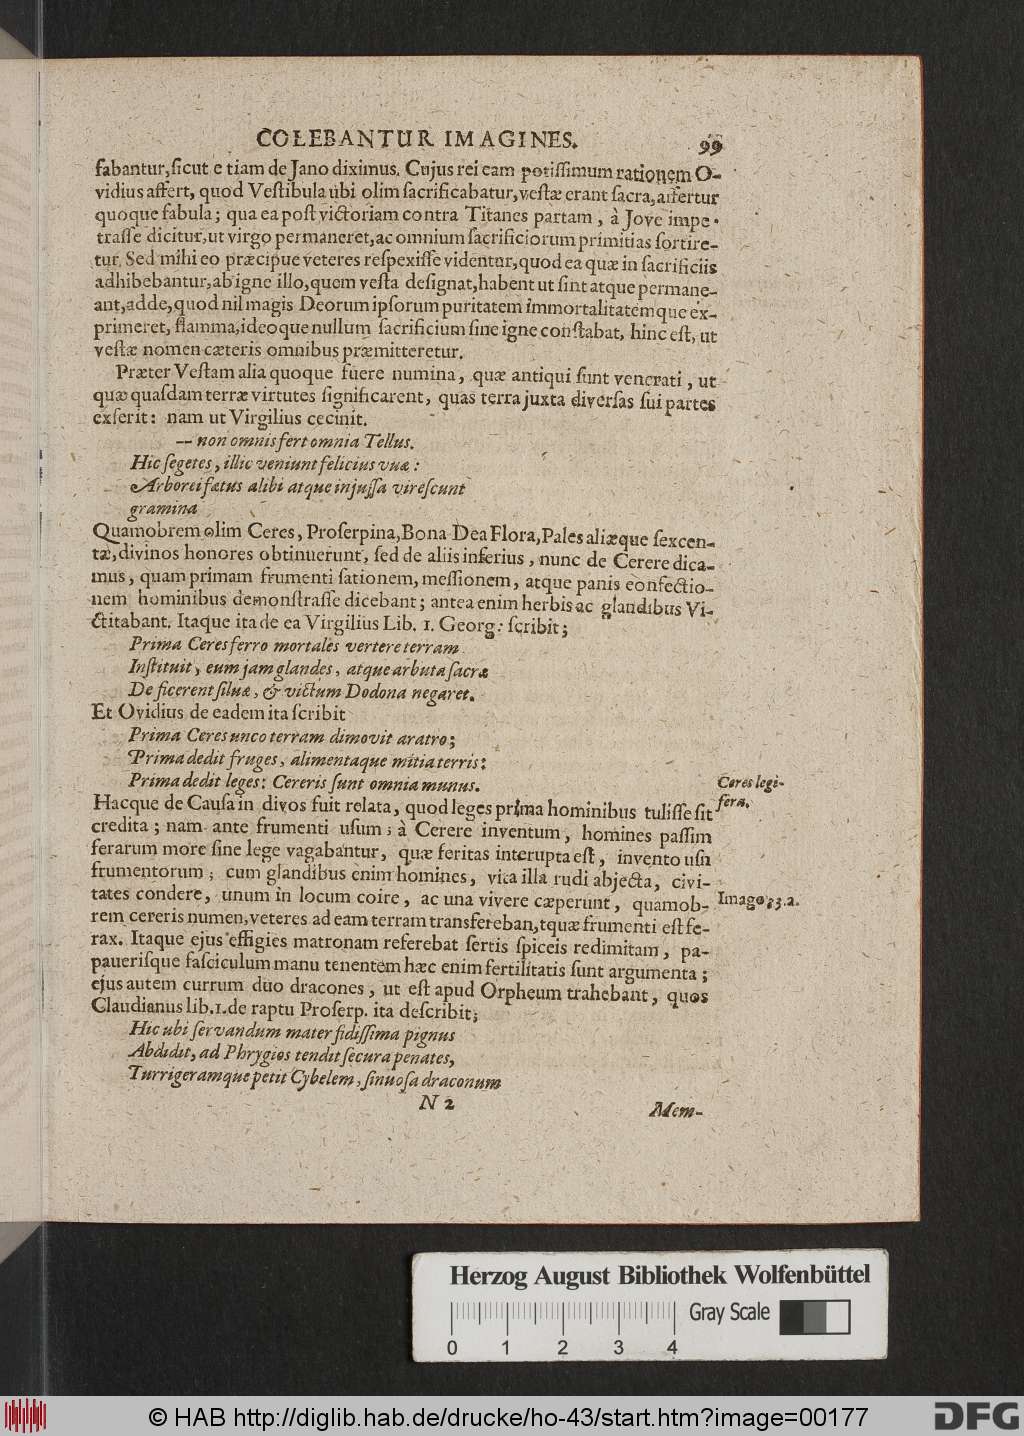 COLEBANTUR IMAGINES. 99
sabantur, sicut e tiam de Jano diximus. Cujus rei eam potissimum rationem O-
vidius affert, quod Vestibula ubi olim sacrificabatur, vestæ erant sacra, affertur
quoque fabula; qua ea post victoriam contra Titanes partam, à Jove impe-
trasse dicitur, ut virgo permaneret, ac omnium sacrificiorum primitias sortire-
tur. Sed mihi eo præcipue veteres respexisse videntur, quod ea quæ in sacrificiis
adhibebantur, ab igne illo, quem vesta designat, habent ut sint atque permane-
ant, adde, quod nil magis Deorum ipsorum puritatem immortalitatemque ex-
primeret, flamma, ideoque nullum sacrificium sine igne constabat, hinc est, ut
vestæ nomen cæteris omnibus præmitteretur.
Præter Vestam alia quoque fuere numina, quæ antiqui sunt venerati, ut
quæ quasdam terræ virtutes significarent, quas terra juxta diversas sui partes
exserit: nam ut Virgilius cecinit.
-- non omnis fert omnia Tellus.
Hic segetes, illic veniunt felicius vuæ:
Arborei fætus alibi atque injussa virescunt
gramina
Quamobrem olim Ceres, Proserpina, Bona Dea Flora, Pales aliæque sexcen-
tæ, divinos honores obtinuerunt, sed de aliis inferius, nunc de Cerere dica-
mus, quam primam frumenti sationem, messionem, atque panis confectio-
nem hominibus demonstrasse dicebant; antea enim herbis ac glandibus Vi-
ctitabant. Itaque ita de ea Virgilius Lib. 1. Georg: scribit;
Prima Ceres ferro mortales vertere terram
Instituit, cum jam glandes, atque arbuta sacræ
De ficerent siluæ, & victum Dodona negaret.
Et Ovidius de eadem ita scribit
Prima Ceres unco terram dimovit aratro;
Prima dedit fruges, alimentaque mitia terris:
Prima dedit leges: Cereris sunt omnia munus.
Ceres legi-
fera.
Hacque de Causa in divos fuit relata, quod leges prima hominibus tulisse sit
credita; nam ante frumenti usum; à Cerere inventum, homines passim
ferarum more sine lege vagabantur, quæ feritas interupta est, invento usu
frumentorum; cum glandibus enim homines, vita illa rudi abjecta, civi-
tates condere, unum in locum coire, ac una vivere cæperunt, quamob-
Imago 33.2.
rem cereris numen, veteres ad eam terram transfereban, tquæ frumenti est fe-
rax. Itaque ejus effigies matronam referebat sertis spiceis redimitam, pa-
paverisque fasciculum manu tenentem hæc enim fertilitatis sunt argumenta;
ejus autem currum duo dracones, ut est apud Orpheum trahebant, quos
Claudianus lib. 1. de raptu Proserp. ita describit;
Hic ubi servandum mater fidissima pignus
Abdidit, ad Phrygios tendit secura penates,
Turrigeramque petit Cybelem, sinuosa draconum
N 2 Mem-
Herzog August Bibliothek Wolfenbüttel
Gray Scale
0 1 2 3 4
© HAB http://diglib.hab.de/drucke/ho-43/start.htm?image=00177
DFG